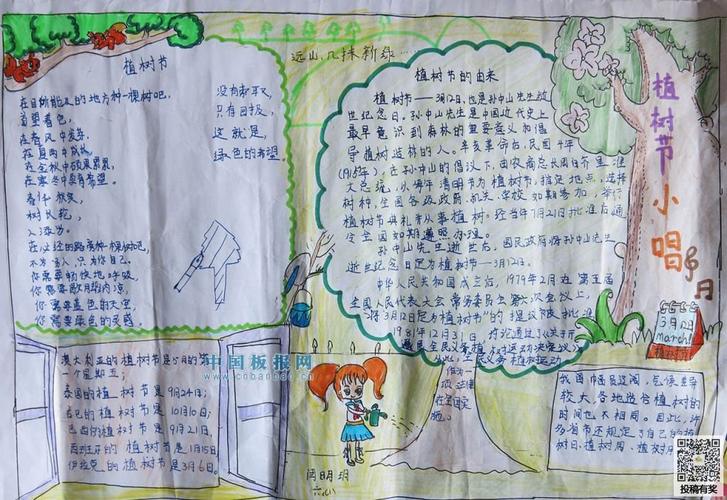 植树节
在目所能及的地方种一棵树吧，
希望着色，
在春风中发芽，
在夏雨中成长，
在金秋中硕果累累，
在寒冬中孕育希望。
春作秋实，
树长轮，
人添岁。
在必经的路旁种一棵树吧，
不为古人，只为自己。
你需要畅快地呼吸，
你需要歇阴的清凉，
你需要蓝色的天空，
你需要绿色的灵感，
没有索取，
只有回报，
这就是，
绿色的希望。
远山，几抹新绿……
植树节的由来
植树节——3月12日，也是孙中山先生逝
世纪念日。孙中山先生是中国近代史上
最早意识到森林的重要意义和倡
导植树造林的人。辛亥革命后，民国十年
(1915年)，在孙中山的倡议下，由农商总长周自齐呈准
大总统，以每年清明节为植树节，指定地点，选择
树种，全国各级政府，机关，学校如期参加，举行
植树节典礼并从事植树。经当年7月21日批准后通
令全国如期遵照办理。
孙中山先生逝世后，国民政府将孙中山先生
逝世纪念日定为植树节——3月12日。
中华人民共和国成立后，1979年2月在第五届
全国人民代表大会常务委员会第六次会议上，
将"3月12日定为植树节"的提议被批准
1981年12月31日
植树节小唱
3月12日
March
植树节
澳大利亚的植树节是5月的第
一个星期五；
泰国的植树节是9月24日；
古巴的植树节是10月10日；
巴西的植树节是9月21日，
西班牙的植树节是1月15日
伊拉克的植树节是3月6日。
中国板报网
cnbanbao.cn
闫明玥
六(八)
我国幅员辽阔，气候差异
较大，各地适合植树的
时间也不相同。因此，许
多省市还规定了自己的植
树日、植树周、植树月
投稿有奖